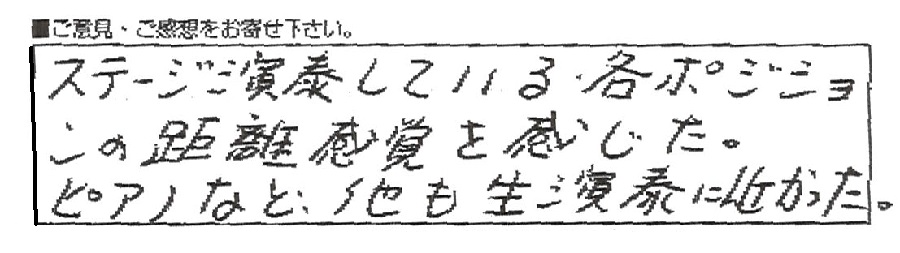 ■ご意見・ご感想をお寄せ下さい。
ステージ演奏している各ポジショ
ンの距離感覚を感じた。
ピアノなど、他も生演奏に近かった。